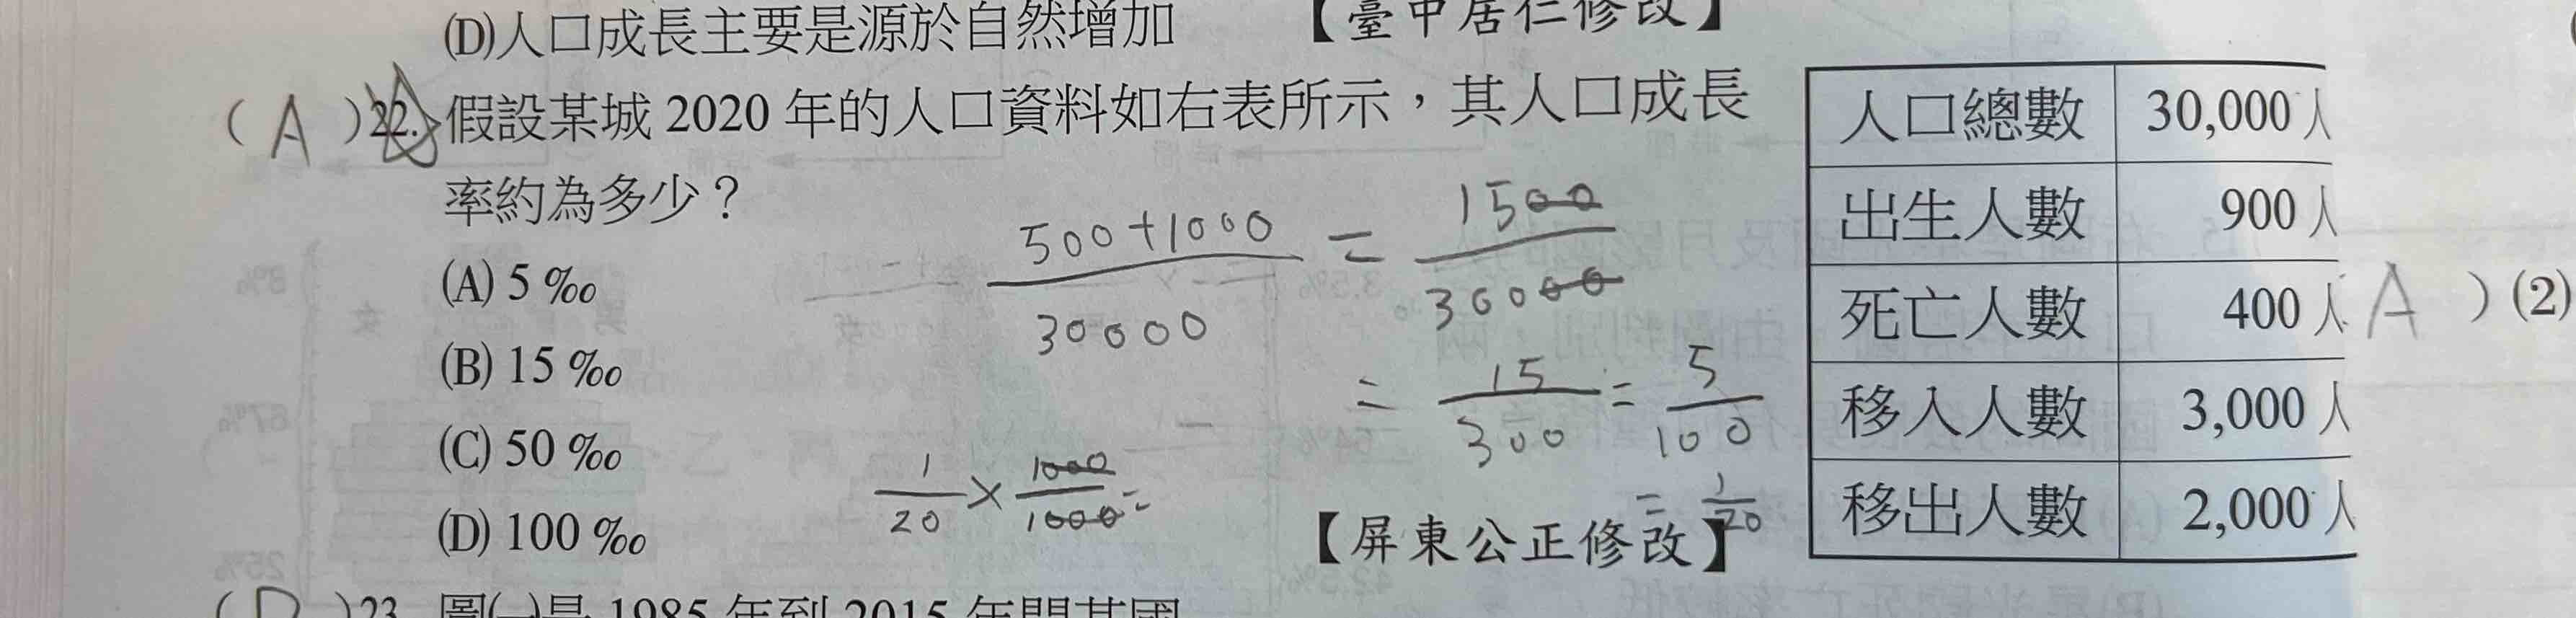 (D)人口成長主要是源於自然增加
【臺中居仁修改】
( A )22.假設某城 2020 年的人口資料如右表所示，其人口成長
率約為多少？
(A) 5 ‰
(B) 15 ‰
(C) 50 ‰
(D) 100 ‰
500+1000 / 30000 = 1500 / 30000
= 15 / 300 = 5 / 100
= 1 / 20
1 / 20 × 1000 / 1000 =
【屏東公正修改】
人口總數 30,000 人
出生人數 900 人
死亡人數 400 人
移入人數 3,000 人
移出人數 2,000 人
A ) (2)
( D )23. 圖(一)是 1985 年到 2015 年間某國